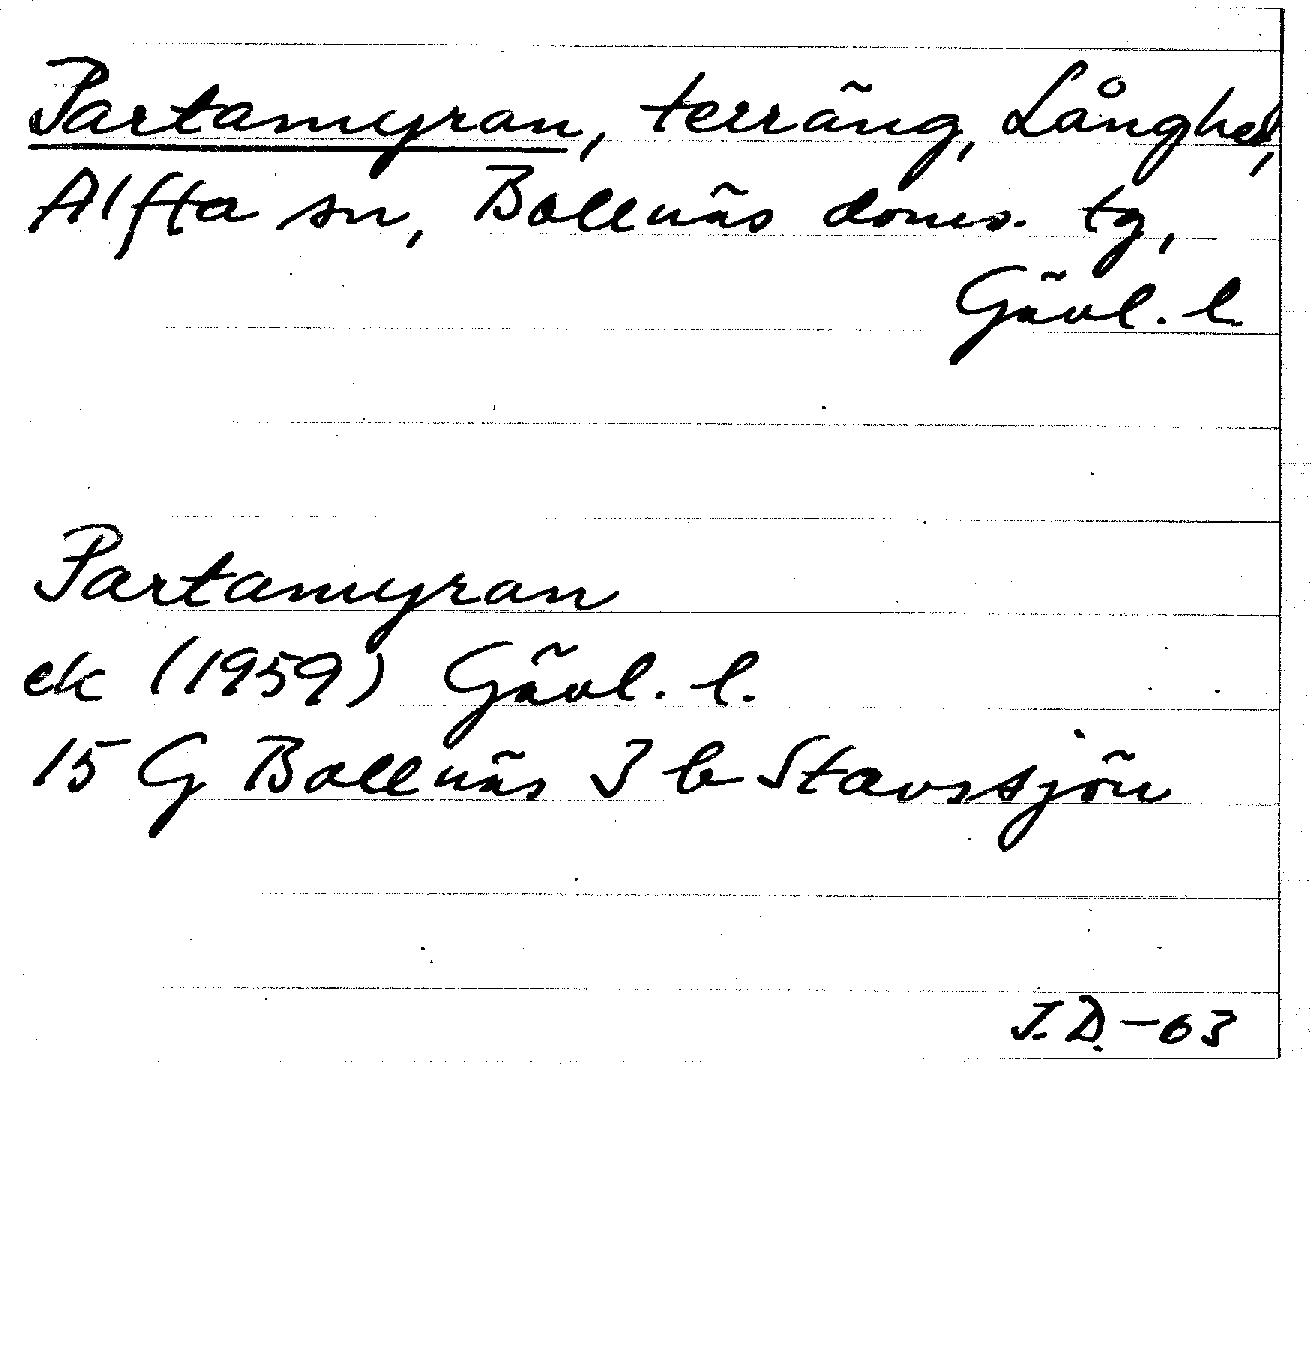 Partamyran, terräng, Långhed,
Alfta sn, Bollnäs doms. tg,
Gävl. l.
Partamyran
ek (1959) Gävl. l.
15 G Bollnäs 3 b Stavssjön
J.D. -63